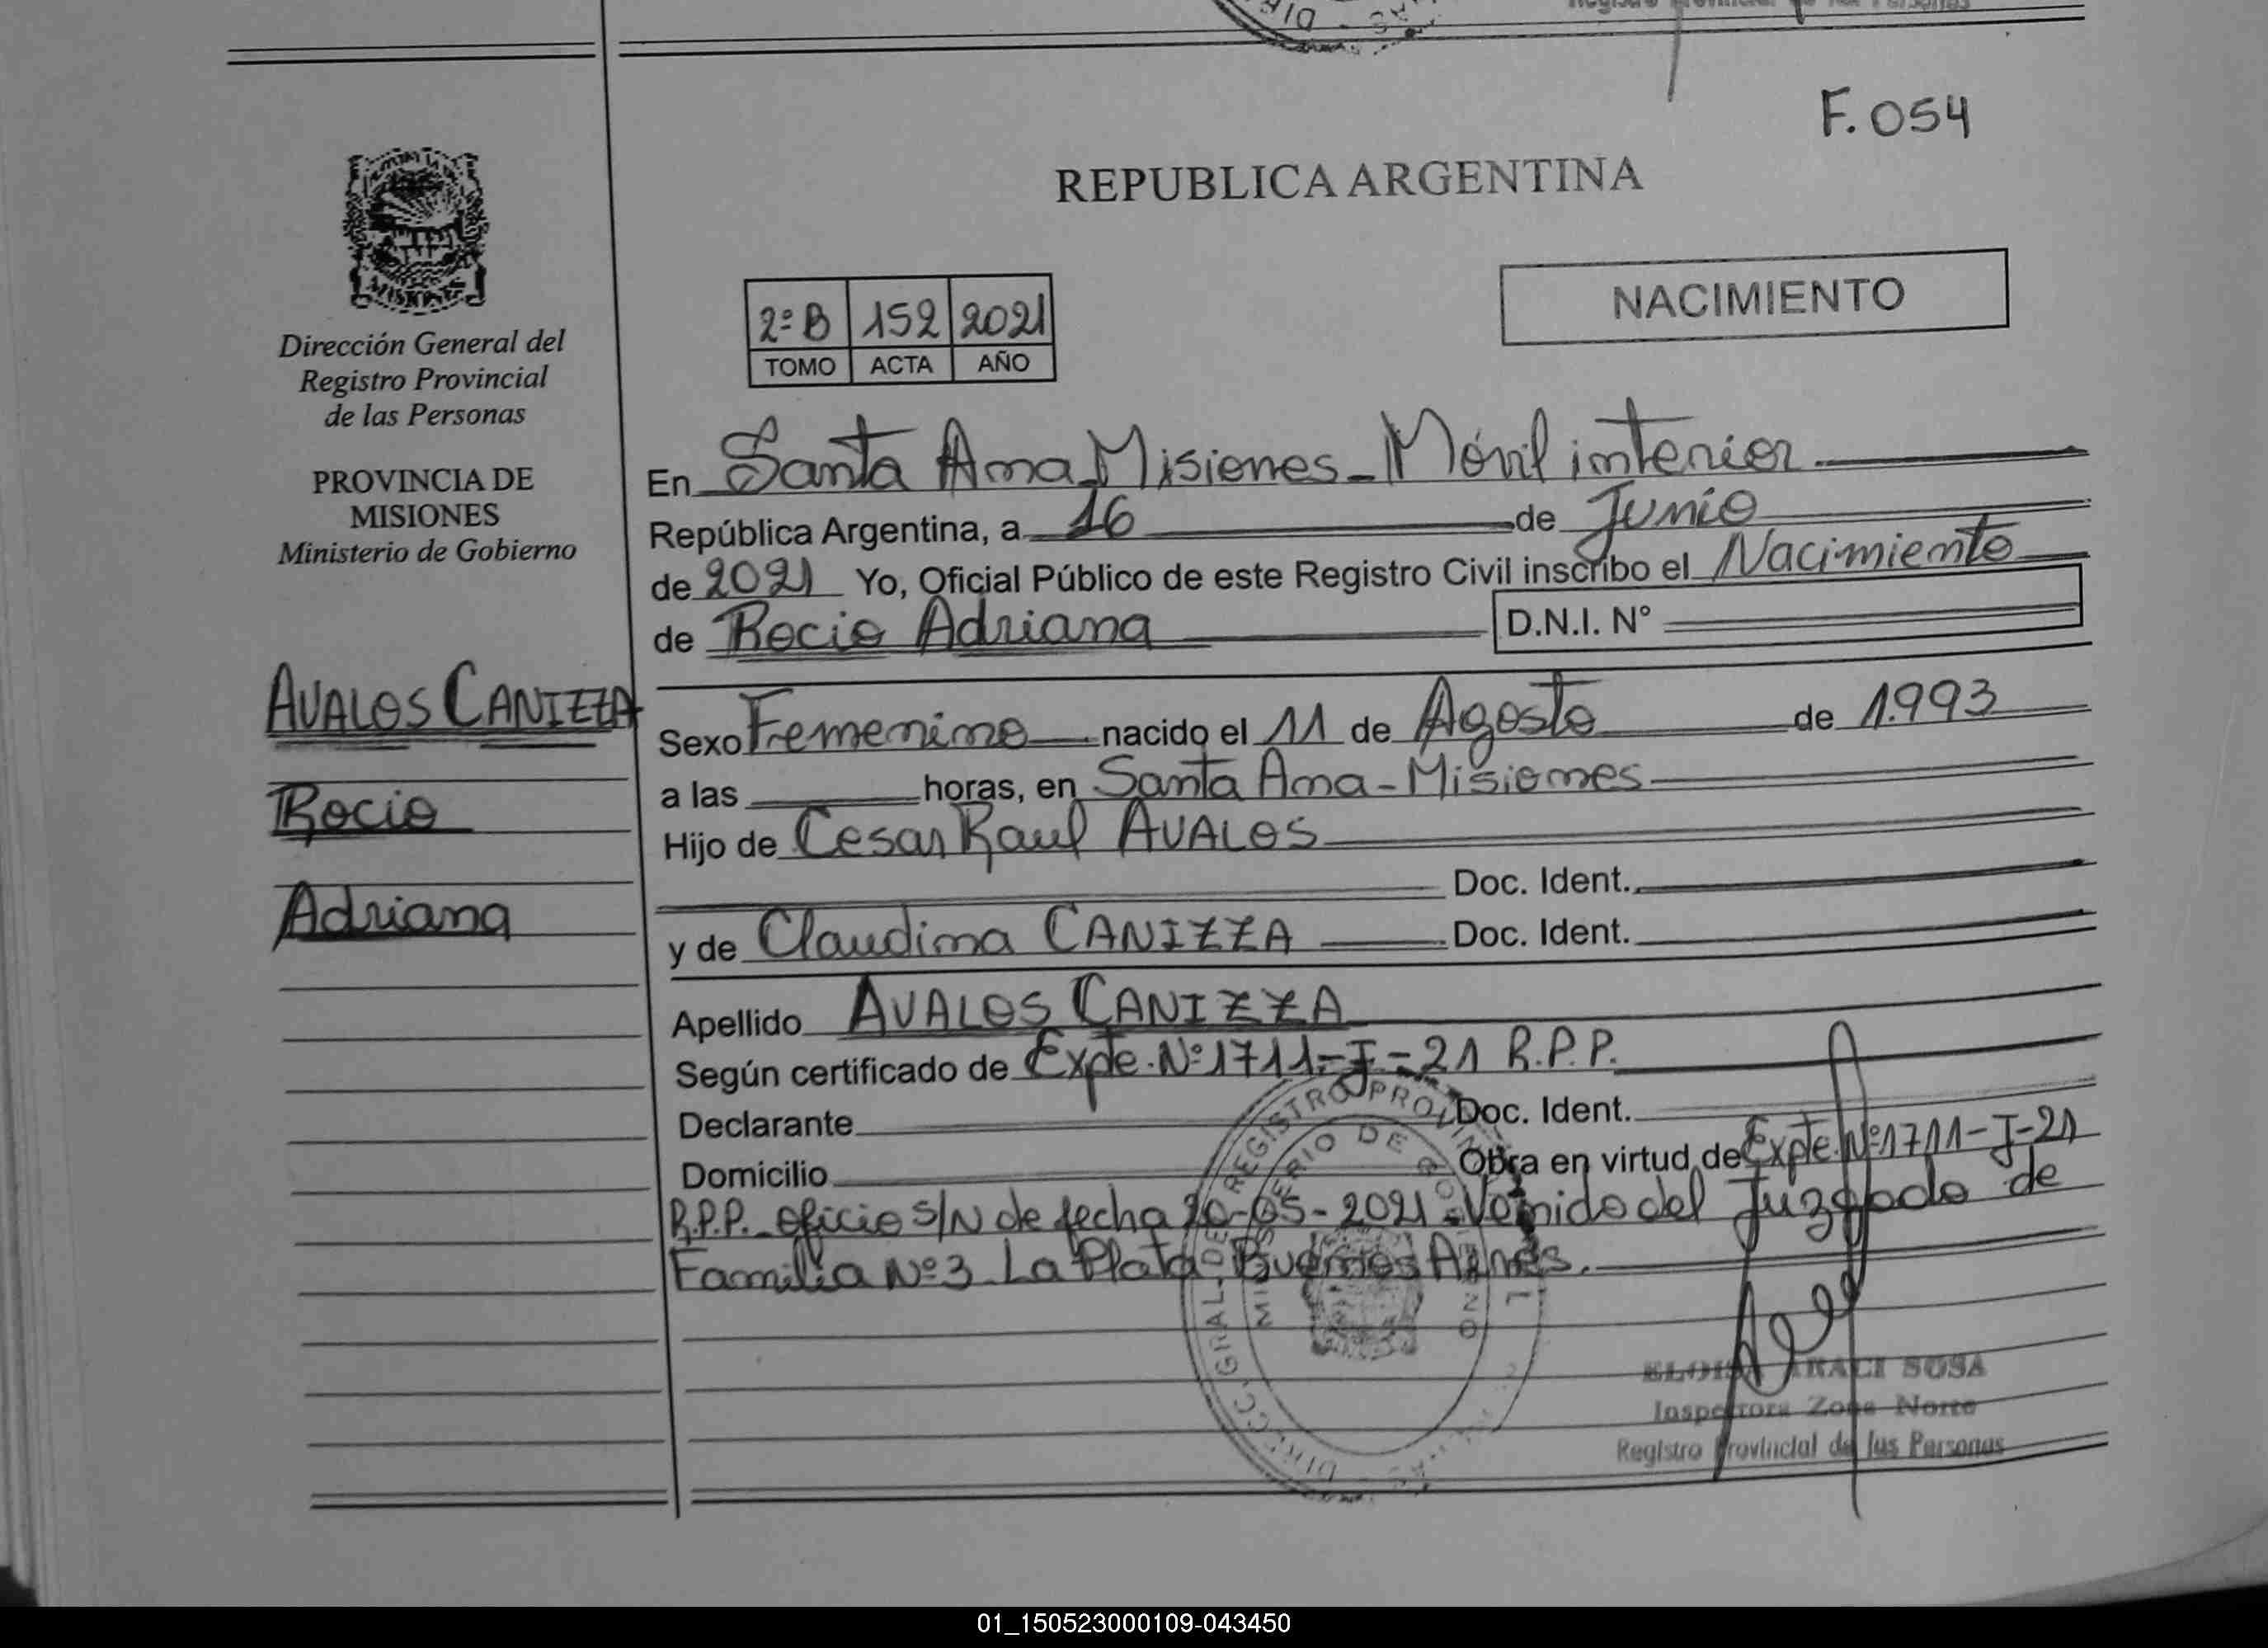 F. 054
REPUBLICA ARGENTINA
NACIMIENTO
2º B 152 2021
TOMO ACTA AÑO
Dirección General del
Registro Provincial
de las Personas
PROVINCIA DE
MISIONES
Ministerio de Gobierno
AVALOS CANIZZA
Rocio
Adriana
En Santa Ana Misiones - Móvil interior
República Argentina, a 16 de Junio
de 2021 Yo, Oficial Público de este Registro Civil inscribo el Nacimiento
de Rocio Adriana D.N.I. Nº
Sexo Femenino nacido el 11 de Agosto de 1.993
a las horas, en Santa Ana - Misiones
Hijo de Cesar Raul AVALOS
Doc. Ident.
y de Claudina CANIZZA Doc. Ident.
Apellido AVALOS CANIZZA
Según certificado de Expte. Nº 1711-J-21 R.P.P.
Declarante Doc. Ident.
Domicilio Obra en virtud de Expte. Nº 1711-J-21
R.P.P. oficio S/N de fecha 20-05-2021. Venido del Juzgado de
Familia Nº 3 La Plata Buenos Aires.
SOSA
Inspectora Zona Norte
Registro Provincial de las Personas
01_150523000109-043450